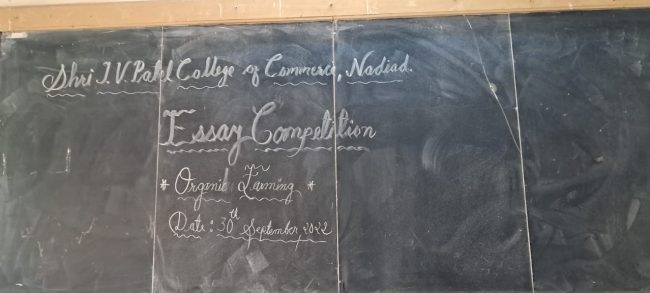 Shri J. V. Patel College of Commerce, Nadiad.
Essay Competition
* Organic Farming *
Date : 30th September, 2022